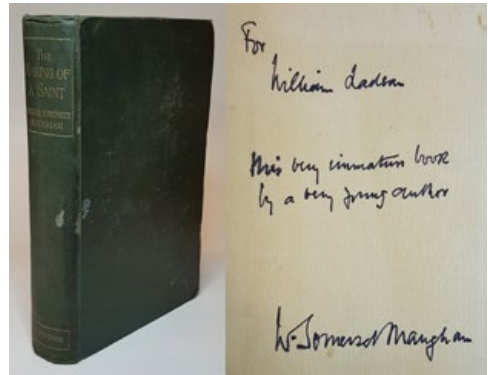 THE
MAKING OF
A SAINT
WILLIAM SOMERSET
MAUGHAM
For
William
this very immature book
by a very young author
W. Somerset Maugham